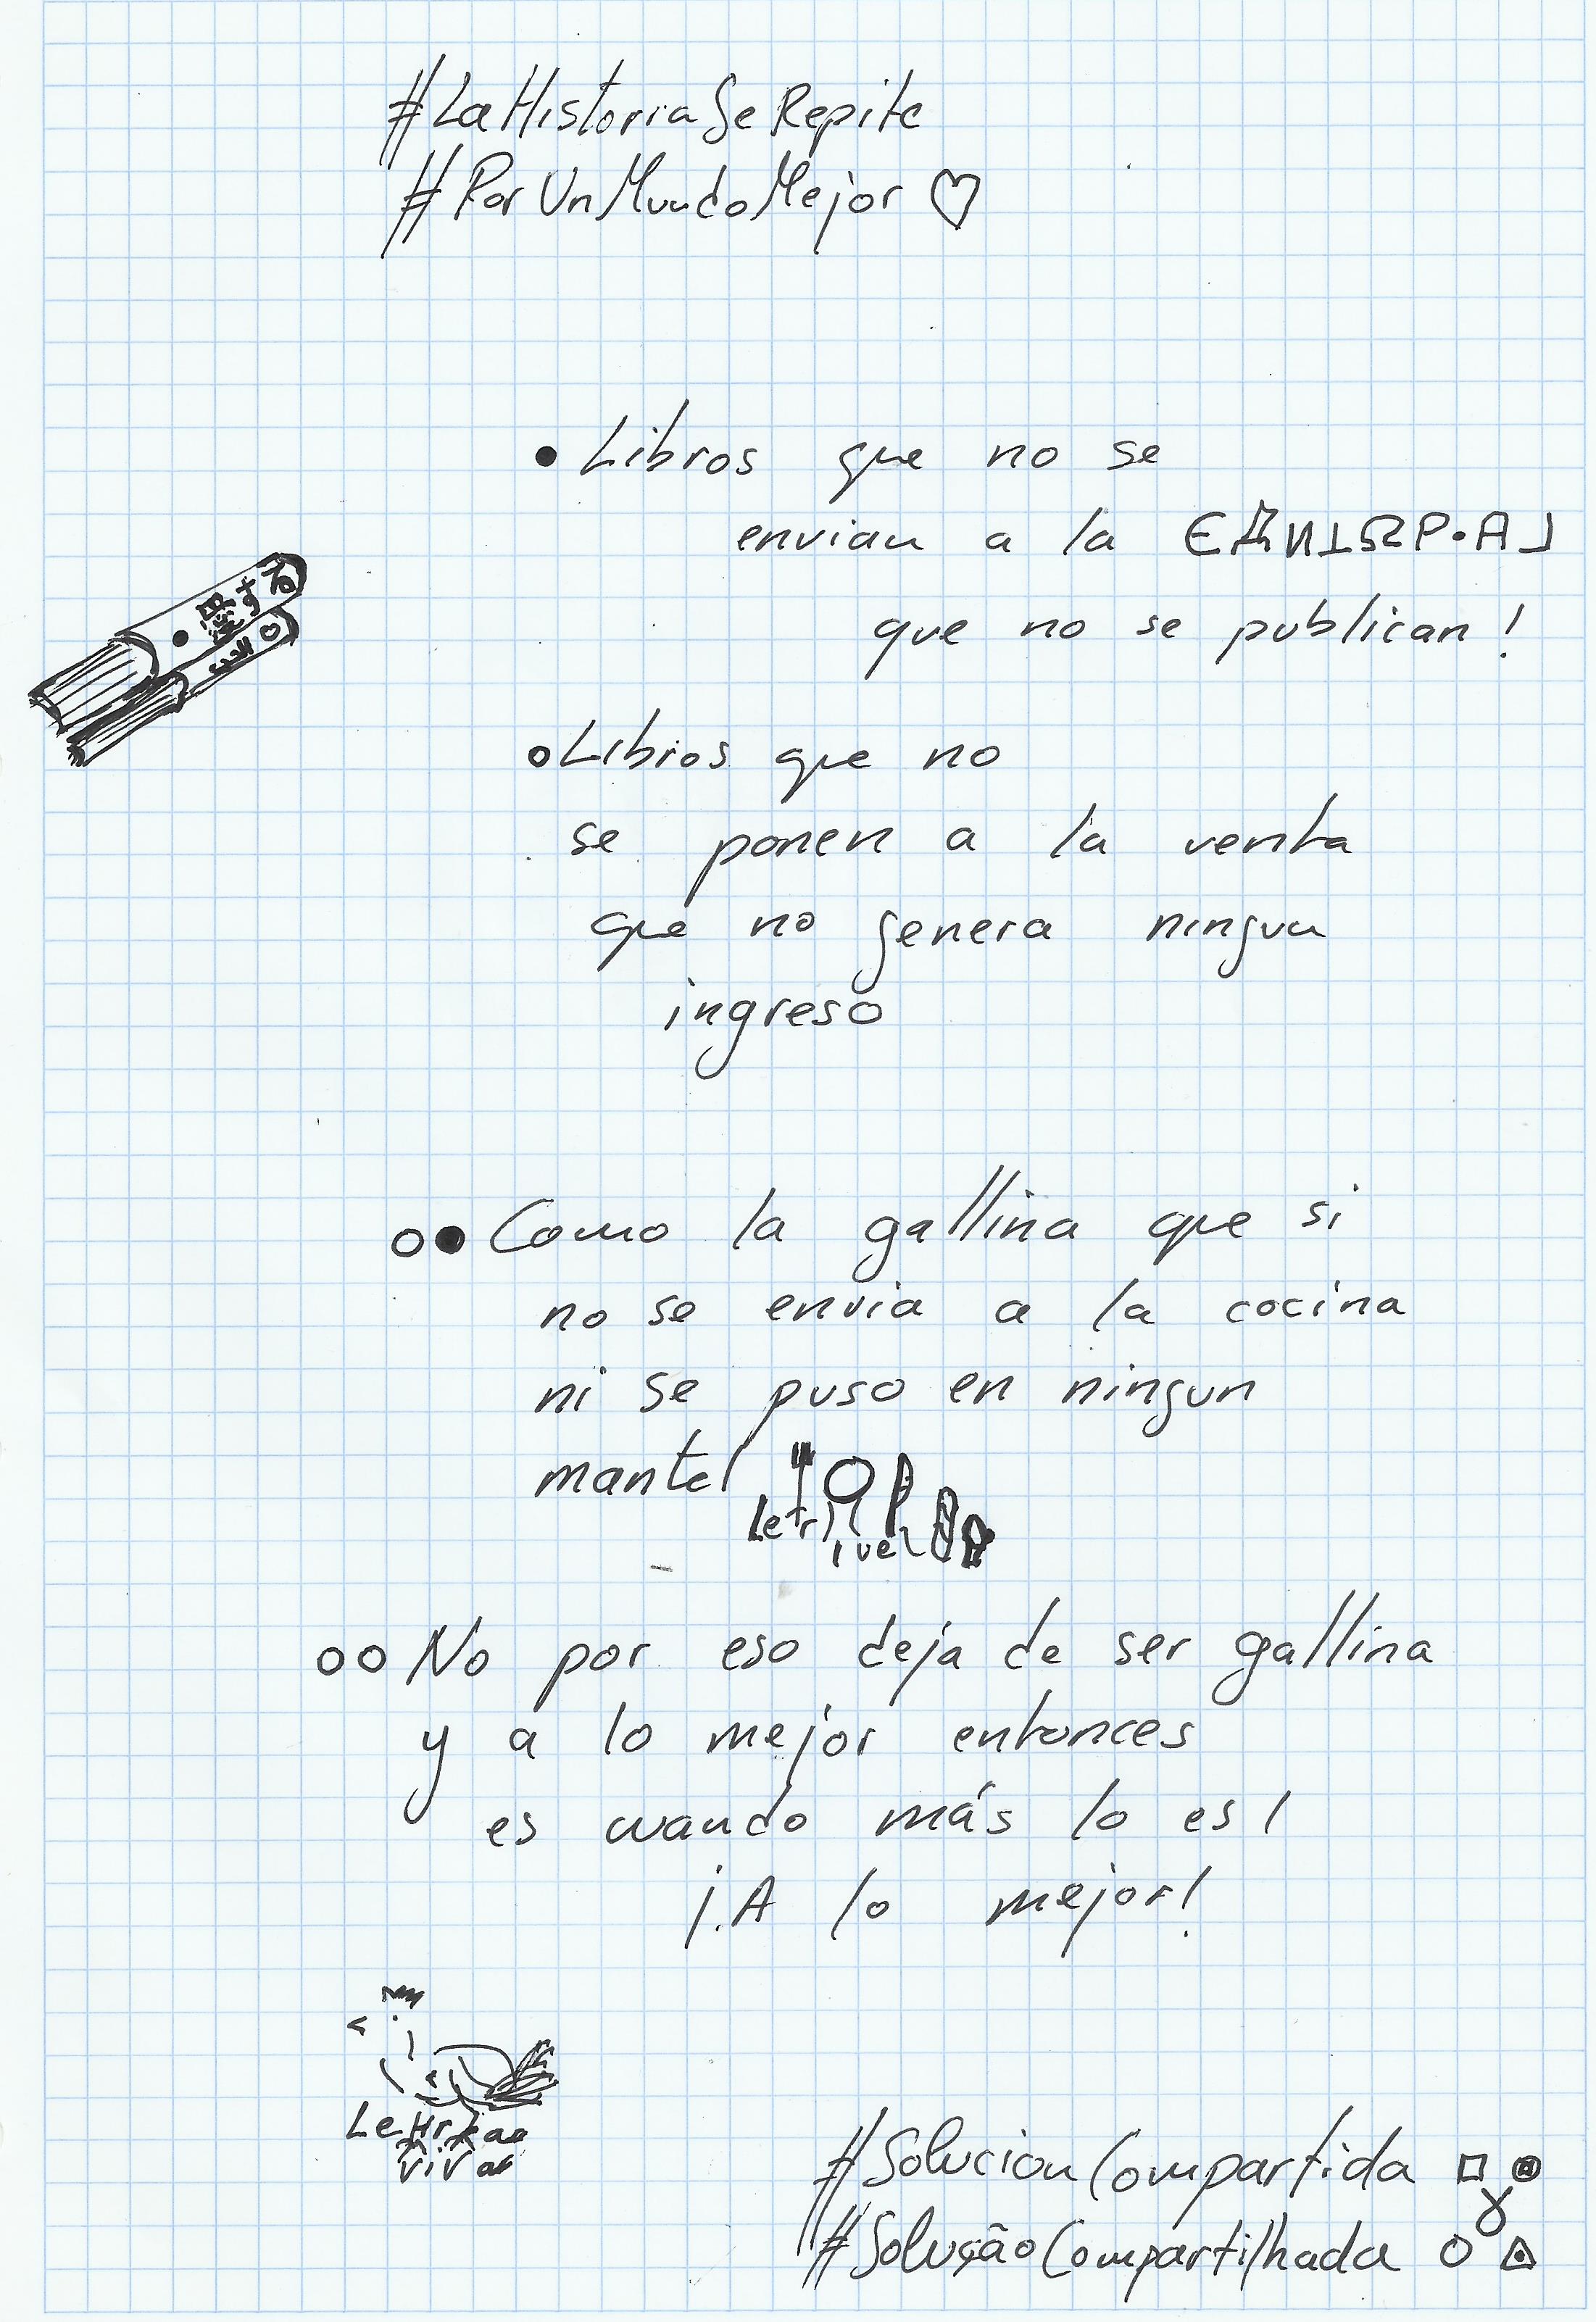 #LaHistoriaSeRepite
#PorUnMundoMejor ♡
• Libros que no se
envian a la
que no se publican!
○ Libros que no
se ponen a la venta
que no genera ningun
ingreso
○● Como la gallina que si
no se envia a la cocina
ni se puso en ningun
mantel
○○ No por eso deja de ser gallina
y a lo mejor entonces
es cuando más lo es!
¡.A lo mejor!
#SolucionCompartida
#SoluçãoCompartilhada